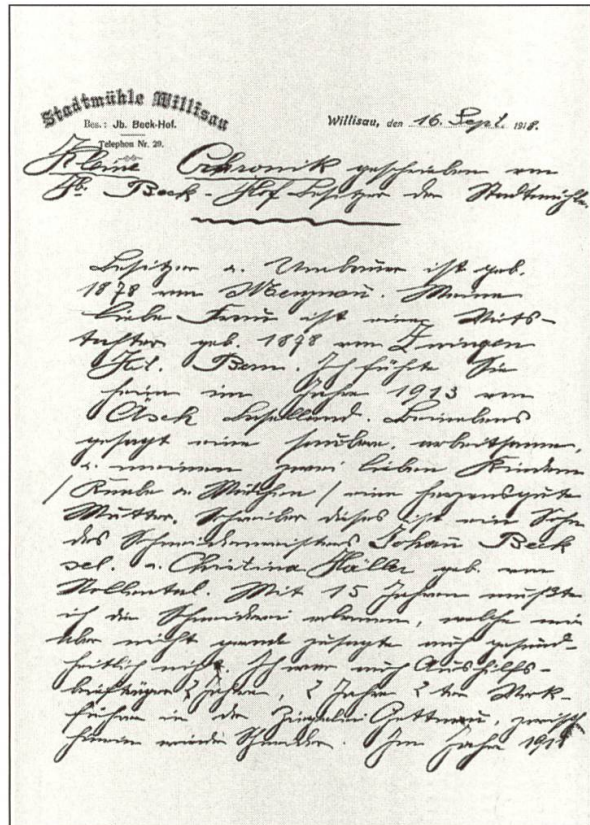 Stadtmühle Willisau
Bes.: Jb. Beck-Hof.
Telephon Nr. 29.
Willisau, den 16. Sept. 1918.
Kleine Chronik geschrieben von
Jb. Beck-Hof Besitzer der Stadtmühle.
Besitzer u. Umbauer ist geb.
1878 von Menznau. Meine
liebe Frau ist eine Wirts-
tochter geb. 1878 von Zwingen
Kt. Bern. Ich führte Sie
heim im Jahre 1913 von
Äsch Baselland. Beinebens
gesagt eine saubere, arbeitsame,
u. meinen zwei lieben Kindern
/ Knabe u. Mädchen / eine herzensgute
Mutter. Schreiber dieses ist ein Sohn
des Schneidermeisters Johañ Beck
sel. u. Christina Häller geb. von
Mit 15 Jahren mußte
ich die Schneiderei erlernen, welche mir
aber nicht gerade zusagte auch gesund-
heitlich nicht. Ich war auch Aushilfs-
briefträger 2 Jahre, 2 Jahre 2ter Werk-
führer in der Ziegelei Gettnau, zwisch
hinein wieder Schneider. Im Jahre 191